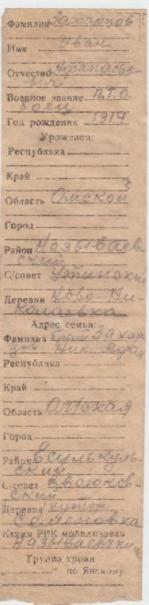 Фамилия Захарцов
Имя Иван
Отчество Афанасье
вич
Военное звание П.Т.О.
боец
Год рождения 1914
Уроженец:
Республика
Край
Область Омской
Город
Район Называев
ский
С/совет Утинский
Деревня Ново-Ни
колаевка
Адрес семьи:
Фамилия Захар
Республика
Край
Область Омская
Город
Район Исилькуль
ский
С/совет
ский
Деревня хутор
Семеновка
Каким РВК мобилизован
Называевским
Группа крови
по Янскому